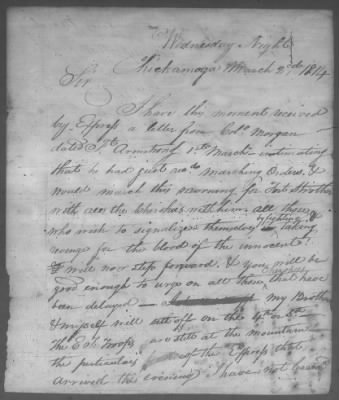 Wednesday Night
Chickamaga March 2nd 1814
Sir
I have this moment received
by Express a letter from Colo. Morgan
dated Ft. Armstrong 1st March intimating
that he had just recd. marching Orders, &
would march this morning for Fort Strother
with all the Cherokees with him. all those
who wish to signalize themselves by fighting &
taking
revenge for the blood of the innocent
will now step forward. & you will be
good enough to urge on all those Cherokees that have
been delayed — my Brother
& myself will sett off on the 4th or 5th
The E.T. Troops are still at the mountain
the particulars of the Express that
arrived this evening I have not heard